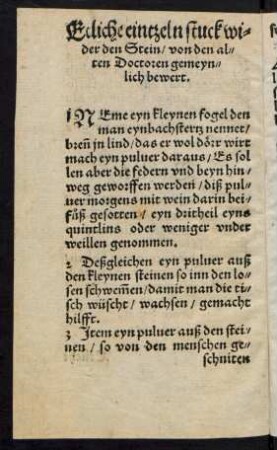 Etliche eintzeln stuck wi-
der den Stein/ von den al-
ten Doctoren gemeyn-
lich bewert.
1 NEme eyn kleynen fogel den
man eynbachstertz nennet/
breñ jn lind/das er wol dörr wirt
mach eyn puluer daraus/ Es sol
len aber die federn vnd beyn hin-
weg geworffen werden/ diß pul-
uer morgens mit wein darin bei-
füß gesotten/ eyn dritheil eyns
quintlins oder weniger vnder
weillen genommen.
2 Deßgleichen eyn puluer auß
den kleynen steinen so inn den lo-
sen schwem̃en/damit man die ti-
sch wüscht/ wachsen/ gemacht
hilfft.
3 Item eyn puluer auß den stei-
nen/ so von den menschen ge-
schniten